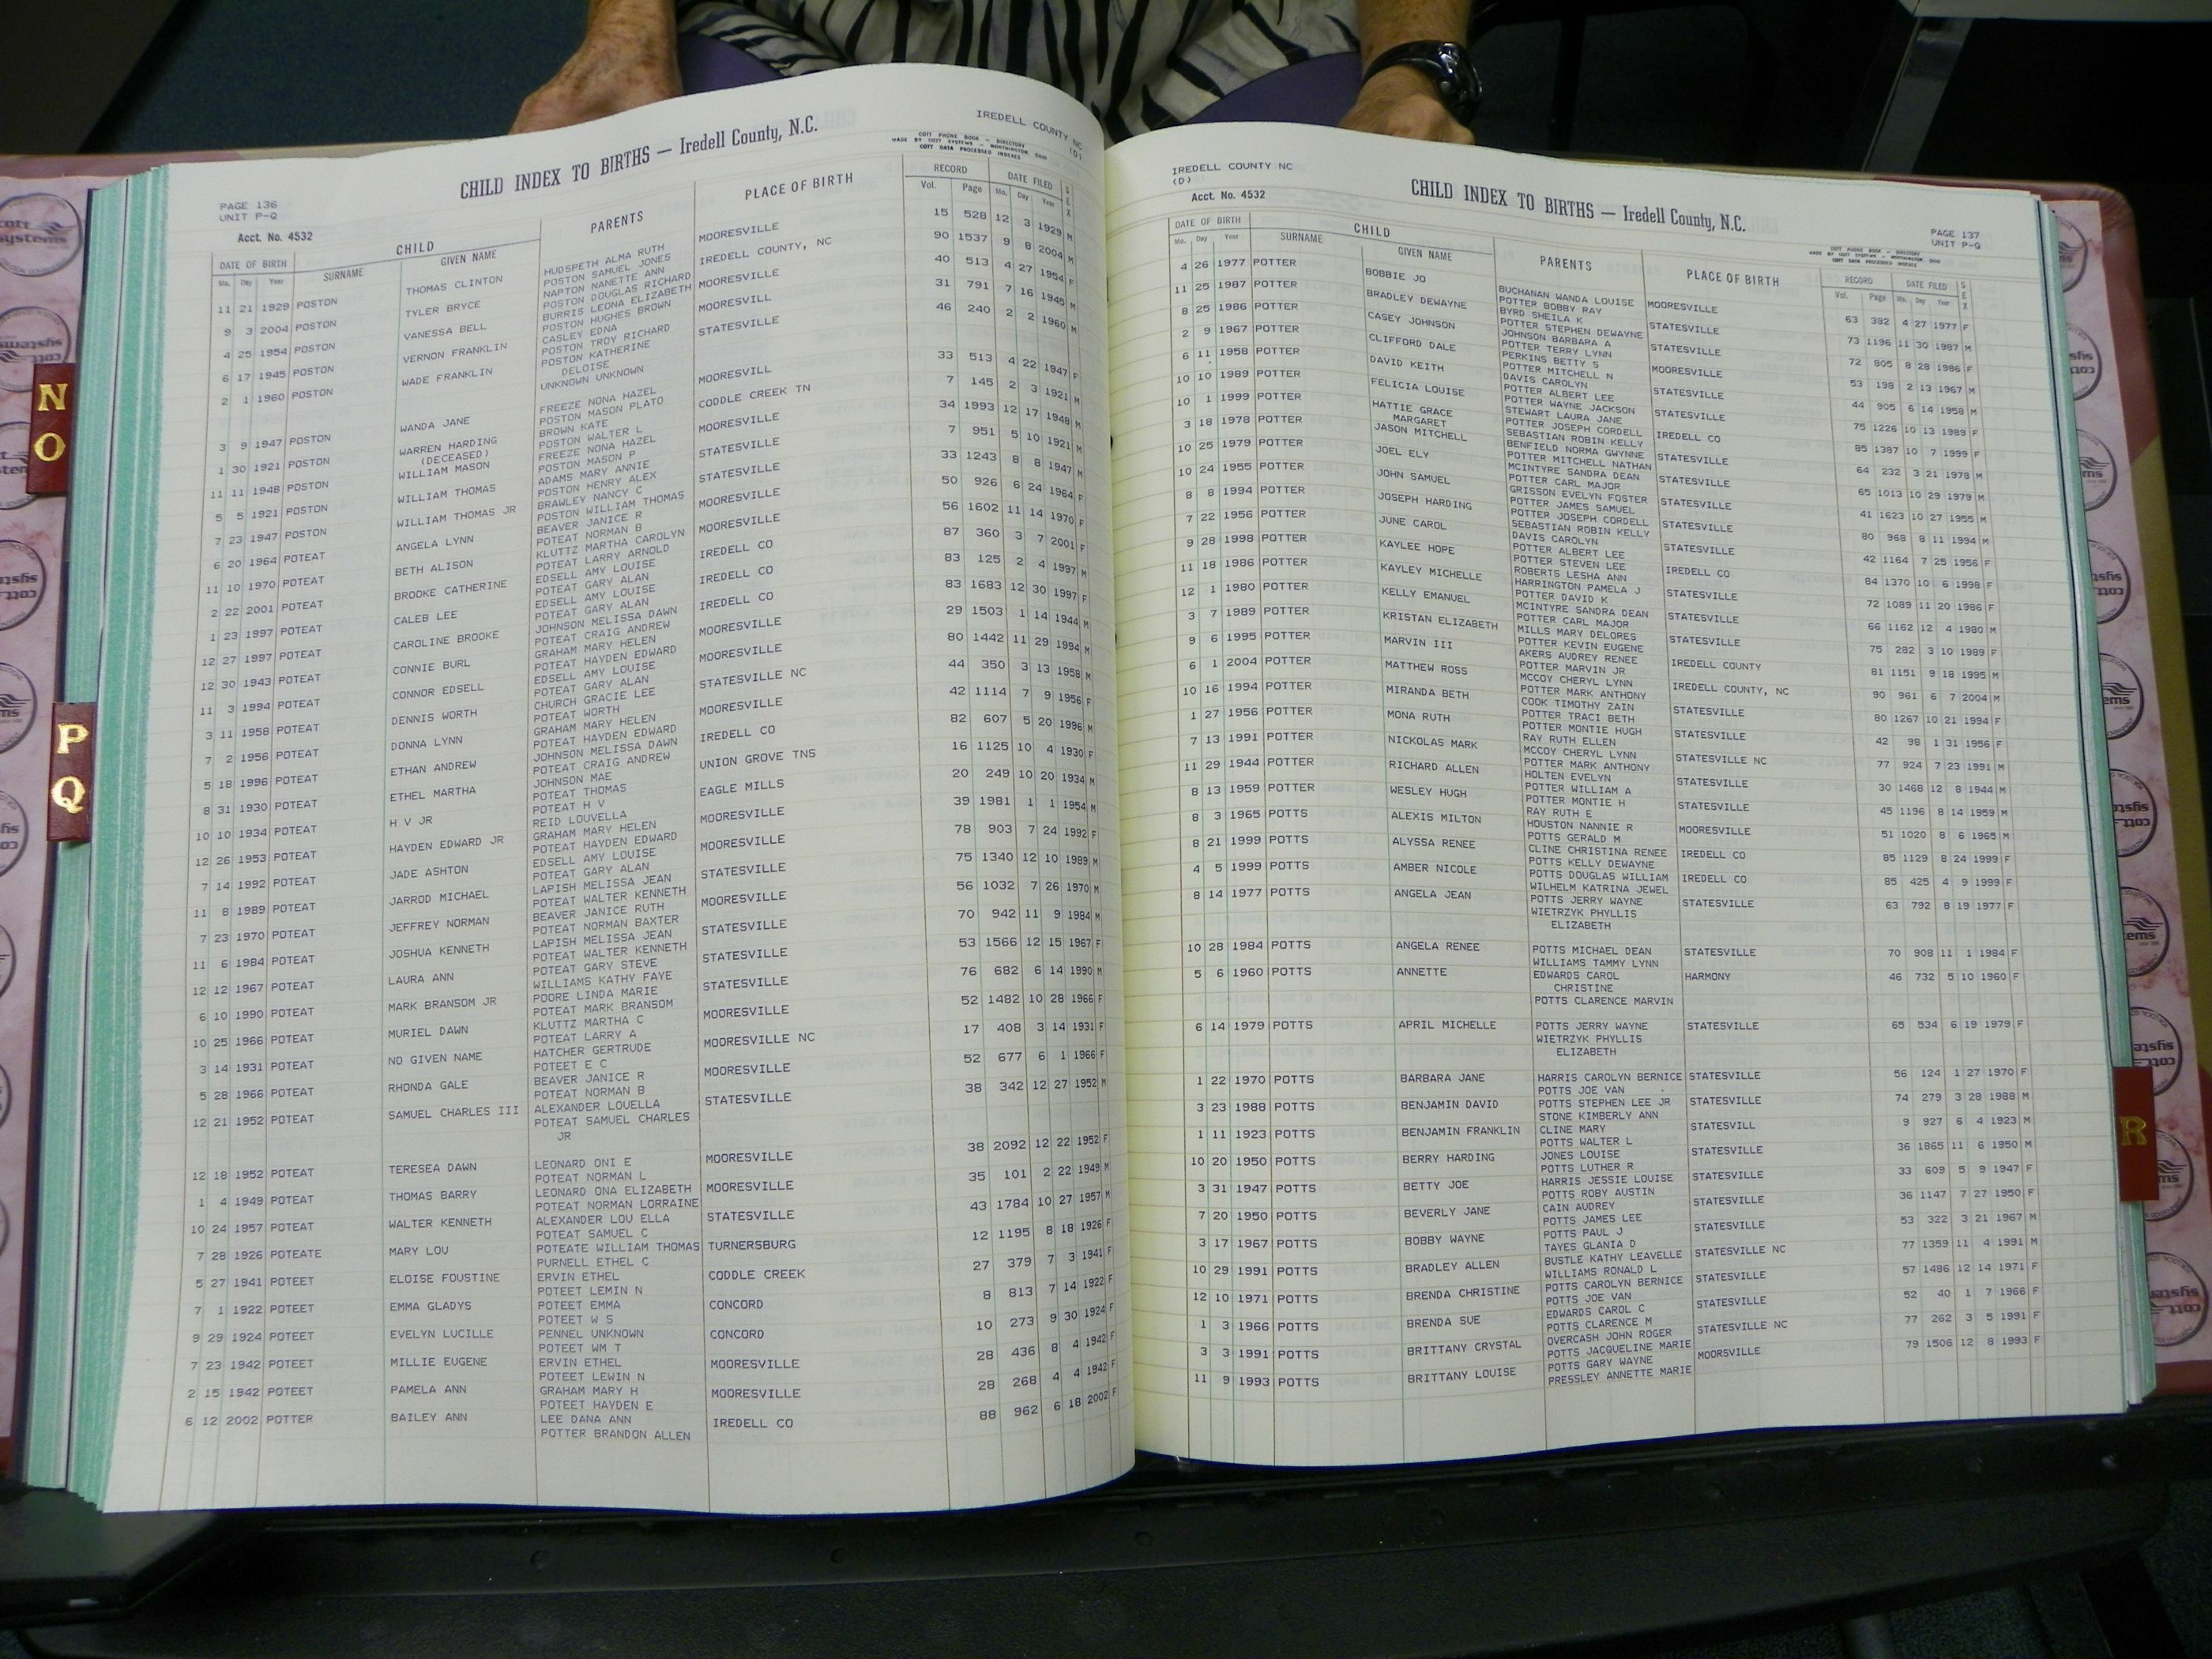 PAGE 136
UNIT P-Q
Acct. No. 4532
CHILD INDEX TO BIRTHS — Iredell County, N.C.
IREDELL COUNTY NC
(D)
COTT PHONE BOOK — DIRECTORY
MADE BY COTT SYSTEMS — WORTHINGTON, OHIO
COTT DATA PROCESSED INDEXES
DATE OF BIRTH CHILD PARENTS PLACE OF BIRTH RECORD DATE FILED SEX
Mo. Day Year SURNAME GIVEN NAME Vol. Page Mo. Day Year
11 21 1929 POSTON THOMAS CLINTON HUDSPETH ALMA RUTH MOORESVILLE 15 528 12 3 1929 M
POSTON SAMUEL JONES
9 3 2004 POSTON TYLER BRYCE NAPTON NANETTE ANN IREDELL COUNTY, NC 90 1537 9 8 2004 M
POSTON DOUGLAS RICHARD
4 25 1954 POSTON VANESSA BELL BURRIS LEONA ELIZABETH MOORESVILLE 40 513 4 27 1954 F
POSTON HUGHES BROWN
6 17 1945 POSTON VERNON FRANKLIN CASLEY EDNA MOORESVILL 31 791 7 16 1945 M
POSTON TROY RICHARD
2 1 1960 POSTON WADE FRANKLIN POSTON KATHERINE STATESVILLE 46 240 2 2 1960 M
DELOISE
UNKNOWN UNKNOWN
3 9 1947 POSTON WANDA JANE FREEZE NONA HAZEL MOORESVILL 33 513 4 22 1947 F
POSTON MASON PLATO
1 30 1921 POSTON WARREN HARDING BROWN KATE CODDLE CREEK TN 7 145 2 3 1921 M
(DECEASED) POSTON WALTER L
11 11 1948 POSTON WILLIAM MASON FREEZE NONA HAZEL MOORESVILLE 34 1993 12 17 1948 M
POSTON MASON P
5 5 1921 POSTON WILLIAM THOMAS ADAMS MARY ANNIE STATESVILLE 7 951 5 10 1921 M
POSTON HENRY ALEX
7 23 1947 POSTON WILLIAM THOMAS JR BRAWLEY NANCY C STATESVILLE 33 1243 8 8 1947 M
POSTON WILLIAM THOMAS
6 20 1964 POTEAT ANGELA LYNN BEAVER JANICE R MOORESVILLE 50 926 6 24 1964 F
POTEAT NORMAN B
11 10 1970 POTEAT BETH ALISON KLUTTZ MARTHA CAROLYN MOORESVILLE 56 1602 11 14 1970 F
POTEAT LARRY ARNOLD
2 22 2001 POTEAT BROOKE CATHERINE EDSELL AMY LOUISE IREDELL CO 87 360 3 7 2001 F
POTEAT GARY ALAN
1 23 1997 POTEAT CALEB LEE EDSELL AMY LOUISE IREDELL CO 83 125 2 4 1997 M
POTEAT GARY ALAN
12 27 1997 POTEAT CAROLINE BROOKE JOHNSON MELISSA DAWN IREDELL CO 83 1683 12 30 1997 F
POTEAT CRAIG ANDREW
12 30 1943 POTEAT CONNIE BURL GRAHAM MARY HELEN MOORESVILLE 29 1503 1 14 1944 M
POTEAT HAYDEN EDWARD
11 3 1994 POTEAT CONNOR EDSELL EDSELL AMY LOUISE MOORESVILLE 80 1442 11 29 1994 M
POTEAT GARY ALAN
3 11 1958 POTEAT DENNIS WORTH CHURCH GRACIE LEE STATESVILLE NC 44 350 3 13 1958 M
POTEAT WORTH
7 2 1956 POTEAT DONNA LYNN GRAHAM MARY HELEN MOORESVILLE 42 1114 7 9 1956 F
POTEAT HAYDEN EDWARD
5 18 1996 POTEAT ETHAN ANDREW JOHNSON MELISSA DAWN IREDELL CO 82 607 5 20 1996 M
POTEAT CRAIG ANDREW
8 31 1930 POTEAT ETHEL MARTHA JOHNSON MAE UNION GROVE TNS 16 1125 10 4 1930 F
POTEAT THOMAS
10 10 1934 POTEAT H V JR POTEAT H V EAGLE MILLS 20 249 10 20 1934 M
REID LOUVELLA
12 26 1953 POTEAT HAYDEN EDWARD JR GRAHAM MARY HELEN MOORESVILLE 39 1981 1 1 1954 M
POTEAT HAYDEN EDWARD
7 14 1992 POTEAT JADE ASHTON EDSELL AMY LOUISE MOORESVILLE 78 903 7 24 1992 F
POTEAT GARY ALAN
11 8 1989 POTEAT JARROD MICHAEL LAPISH MELISSA JEAN STATESVILLE 75 1340 12 10 1989 M
POTEAT WALTER KENNETH
7 23 1970 POTEAT JEFFREY NORMAN BEAVER JANICE RUTH MOORESVILLE 56 1032 7 26 1970 M
POTEAT NORMAN BAXTER
11 6 1984 POTEAT JOSHUA KENNETH LAPISH MELISSA JEAN STATESVILLE 70 942 11 9 1984 M
POTEAT WALTER KENNETH
12 12 1967 POTEAT LAURA ANN POTEAT GARY STEVE STATESVILLE 53 1566 12 15 1967 F
WILLIAMS KATHY FAYE
6 10 1990 POTEAT MARK BRANSOM JR POORE LINDA MARIE STATESVILLE 76 682 6 14 1990 M
POTEAT MARK BRANSOM
10 25 1966 POTEAT MURIEL DAWN KLUTTZ MARTHA C MOORESVILLE 52 1482 10 28 1966 F
POTEAT LARRY A
3 14 1931 POTEAT NO GIVEN NAME HATCHER GERTRUDE MOORESVILLE NC 17 408 3 14 1931 F
POTEET E C
5 28 1966 POTEAT RHONDA GALE BEAVER JANICE R MOORESVILLE 52 677 6 1 1966 F
POTEAT NORMAN B
12 21 1952 POTEAT SAMUEL CHARLES III ALEXANDER LOUELLA STATESVILLE 38 342 12 27 1952 M
POTEAT SAMUEL CHARLES
JR
12 18 1952 POTEAT TERESEA DAWN LEONARD ONI E MOORESVILLE 38 2092 12 22 1952 F
POTEAT NORMAN L
1 4 1949 POTEAT THOMAS BARRY LEONARD ONA ELIZABETH MOORESVILLE 35 101 2 22 1949 M
POTEAT NORMAN LORRAINE
10 24 1957 POTEAT WALTER KENNETH ALEXANDER LOU ELLA STATESVILLE 43 1784 10 27 1957 M
POTEAT SAMUEL C
7 28 1926 POTEATE MARY LOU POTEATE WILLIAM THOMAS TURNERSBURG 12 1195 8 18 1926 F
PURNELL ETHEL C
5 27 1941 POTEET ELOISE FOUSTINE ERVIN ETHEL CODDLE CREEK 27 379 7 3 1941 F
POTEET LEMIN N
7 1 1922 POTEET EMMA GLADYS POTEET EMMA CONCORD 8 813 7 14 1922 F
POTEET W S
9 29 1924 POTEET EVELYN LUCILLE PENNEL UNKNOWN CONCORD 10 273 9 30 1924 F
POTEET WM T
7 23 1942 POTEET MILLIE EUGENE ERVIN ETHEL MOORESVILLE 28 436 8 4 1942 F
POTEET LEWIN N
2 15 1942 POTEET PAMELA ANN GRAHAM MARY H MOORESVILLE 28 268 4 4 1942 F
POTEET HAYDEN E
6 12 2002 POTTER BAILEY ANN LEE DANA ANN IREDELL CO 88 962 6 18 2002 F
POTTER BRANDON ALLEN
IREDELL COUNTY NC
(D)
Acct. No. 4532
CHILD INDEX TO BIRTHS — Iredell County, N.C.
PAGE 137
UNIT P-Q
MADE BY COTT SYSTEMS — WORTHINGTON, OHIO
COTT DATA PROCESSED INDEXES
DATE OF BIRTH CHILD PARENTS PLACE OF BIRTH RECORD DATE FILED SEX
Mo. Day Year SURNAME GIVEN NAME Vol. Page Mo. Day Year
4 26 1977 POTTER BOBBIE JO BUCHANAN WANDA LOUISE MOORESVILLE 63 392 4 27 1977 F
POTTER BOBBY RAY
11 25 1987 POTTER BRADLEY DEWAYNE BYRD SHEILA K STATESVILLE 73 1196 11 30 1987 M
POTTER STEPHEN DEWAYNE
8 25 1986 POTTER CASEY JOHNSON JOHNSON BARBARA A STATESVILLE 72 805 8 28 1986 F
POTTER TERRY LYNN
2 9 1967 POTTER CLIFFORD DALE PERKINS BETTY S MOORESVILLE 53 198 2 13 1967 M
POTTER MITCHELL N
6 11 1958 POTTER DAVID KEITH DAVIS CAROLYN STATESVILLE 44 905 6 14 1958 M
POTTER ALBERT LEE
10 10 1989 POTTER FELICIA LOUISE POTTER WAYNE JACKSON STATESVILLE 75 1226 10 13 1989 F
STEWART LAURA JANE
10 1 1999 POTTER HATTIE GRACE POTTER JOSEPH CORDELL IREDELL CO 85 1387 10 7 1999 F
MARGARET SEBASTIAN ROBIN KELLY
3 18 1978 POTTER JASON MITCHELL BENFIELD NORMA GWYNNE STATESVILLE 64 232 3 21 1978 M
POTTER MITCHELL NATHAN
10 25 1979 POTTER JOEL ELY MCINTYRE SANDRA DEAN STATESVILLE 65 1013 10 29 1979 M
POTTER CARL MAJOR
10 24 1955 POTTER JOHN SAMUEL GRISSON EVELYN FOSTER STATESVILLE 41 1623 10 27 1955 M
POTTER JAMES SAMUEL
8 8 1994 POTTER JOSEPH HARDING POTTER JOSEPH CORDELL STATESVILLE 80 968 8 11 1994 M
SEBASTIAN ROBIN KELLY
7 22 1956 POTTER JUNE CAROL DAVIS CAROLYN STATESVILLE 42 1164 7 25 1956 F
POTTER ALBERT LEE
9 28 1998 POTTER KAYLEE HOPE POTTER STEVEN LEE IREDELL CO 84 1370 10 6 1998 F
ROBERTS LESHA ANN
11 18 1986 POTTER KAYLEY MICHELLE HARRINGTON PAMELA J STATESVILLE 72 1089 11 20 1986 F
POTTER DAVID K
12 1 1980 POTTER KELLY EMANUEL MCINTYRE SANDRA DEAN STATESVILLE 66 1162 12 4 1980 M
POTTER CARL MAJOR
3 7 1989 POTTER KRISTAN ELIZABETH MILLS MARY DELORES STATESVILLE 75 282 3 10 1989 F
POTTER KEVIN EUGENE
9 6 1995 POTTER MARVIN III AKERS AUDREY RENEE IREDELL COUNTY 81 1151 9 18 1995 M
POTTER MARVIN JR
6 1 2004 POTTER MATTHEW ROSS MCCOY CHERYL LYNN IREDELL COUNTY, NC 90 961 6 7 2004 M
POTTER MARK ANTHONY
10 16 1994 POTTER MIRANDA BETH COOK TIMOTHY ZAIN STATESVILLE 80 1267 10 21 1994 F
POTTER TRACI BETH
1 27 1956 POTTER MONA RUTH POTTER MONTIE HUGH STATESVILLE 42 98 1 31 1956 F
RAY RUTH ELLEN
7 13 1991 POTTER NICKOLAS MARK MCCOY CHERYL LYNN STATESVILLE NC 77 924 7 23 1991 M
POTTER MARK ANTHONY
11 29 1944 POTTER RICHARD ALLEN HOLTEN EVELYN STATESVILLE 30 1468 12 8 1944 M
POTTER WILLIAM A
8 13 1959 POTTER WESLEY HUGH POTTER MONTIE H STATESVILLE 45 1196 8 14 1959 M
RAY RUTH E
8 3 1965 POTTS ALEXIS MILTON HOUSTON NANNIE R MOORESVILLE 51 1020 8 6 1965 M
POTTS GERALD M
8 21 1999 POTTS ALYSSA RENEE CLINE CHRISTINA RENEE IREDELL CO 85 1129 8 24 1999 F
POTTS KELLY DEWAYNE
4 5 1999 POTTS AMBER NICOLE POTTS DOUGLAS WILLIAM IREDELL CO 85 425 4 9 1999 F
WILHELM KATRINA JEWEL
8 14 1977 POTTS ANGELA JEAN POTTS JERRY WAYNE STATESVILLE 63 792 8 19 1977 F
WIETRZYK PHYLLIS
ELIZABETH
10 28 1984 POTTS ANGELA RENEE POTTS MICHAEL DEAN STATESVILLE 70 908 11 1 1984 F
WILLIAMS TAMMY LYNN
5 6 1960 POTTS ANNETTE EDWARDS CAROL HARMONY 46 732 5 10 1960 F
CHRISTINE
POTTS CLARENCE MARVIN
6 14 1979 POTTS APRIL MICHELLE POTTS JERRY WAYNE STATESVILLE 65 534 6 19 1979 F
WIETRZYK PHYLLIS
ELIZABETH
1 22 1970 POTTS BARBARA JANE HARRIS CAROLYN BERNICE STATESVILLE 56 124 1 27 1970 F
POTTS JOE VAN
3 23 1988 POTTS BENJAMIN DAVID POTTS STEPHEN LEE JR STATESVILLE 74 279 3 28 1988 M
STONE KIMBERLY ANN
1 11 1923 POTTS BENJAMIN FRANKLIN CLINE MARY STATESVILL 9 927 6 4 1923 M
POTTS WALTER L
10 20 1950 POTTS BERRY HARDING JONES LOUISE STATESVILLE 36 1865 11 6 1950 M
POTTS LUTHER R
3 31 1947 POTTS BETTY JOE HARRIS JESSIE LOUISE STATESVILLE 33 609 5 9 1947 F
POTTS ROBY AUSTIN
7 20 1950 POTTS BEVERLY JANE CAIN AUDREY STATESVILLE 36 1147 7 27 1950 F
POTTS JAMES LEE
3 17 1967 POTTS BOBBY WAYNE POTTS PAUL J STATESVILLE 53 322 3 21 1967 M
TAYES GLANIA D
10 29 1991 POTTS BRADLEY ALLEN BUSTLE KATHY LEAVELLE STATESVILLE NC 77 1359 11 4 1991 M
WILLIAMS RONALD L
12 10 1971 POTTS BRENDA CHRISTINE POTTS CAROLYN BERNICE STATESVILLE 57 1486 12 14 1971 F
POTTS JOE VAN
1 3 1966 POTTS BRENDA SUE EDWARDS CAROL C STATESVILLE 52 40 1 7 1966 F
POTTS CLARENCE M
3 3 1991 POTTS BRITTANY CRYSTAL OVERCASH JOHN ROGER STATESVILLE NC 77 262 3 5 1991 F
POTTS JACQUELINE MARIE
11 9 1993 POTTS BRITTANY LOUISE POTTS GARY WAYNE MOORSVILLE 79 1506 12 8 1993 F
PRESSLEY ANNETTE MARIE
N
O
P
Q
R
cott
systems